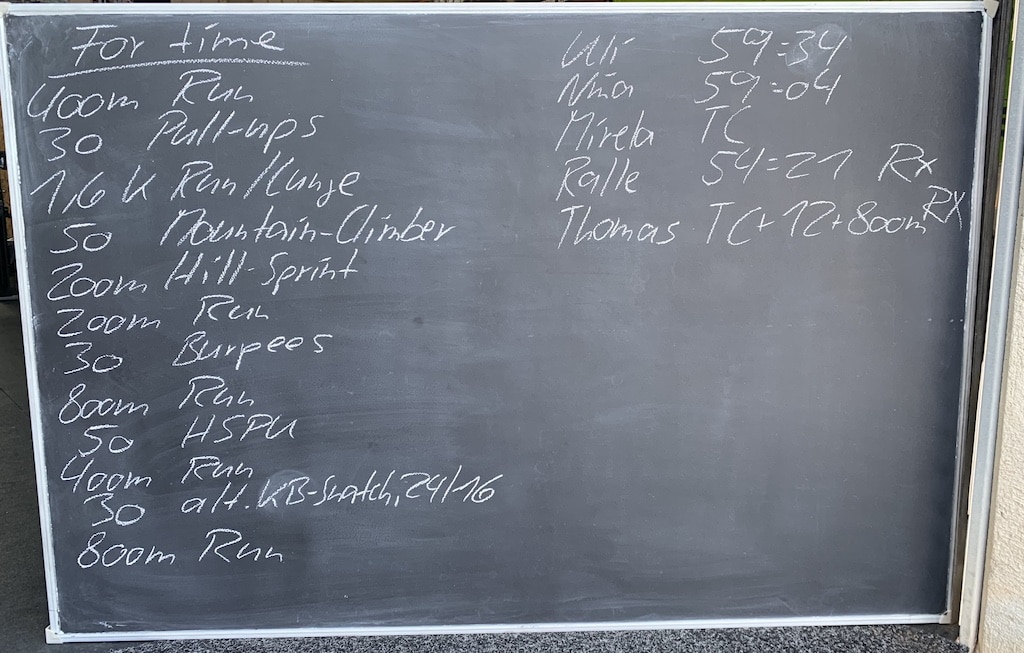 For time
400m Run
30 Pull-ups
1,6 K Run/Lunge
50 Mountain-Climber
200m Hill-Sprint
200m Run
30 Burpees
800m Run
50 HSPU
400m Run
30 alt. KB-Snatch, 24/16
800m Run
Uli 59:34
Nina 59:04
Mirela TC
Ralle 54:21 Rx
Thomas TC+12+800m RX